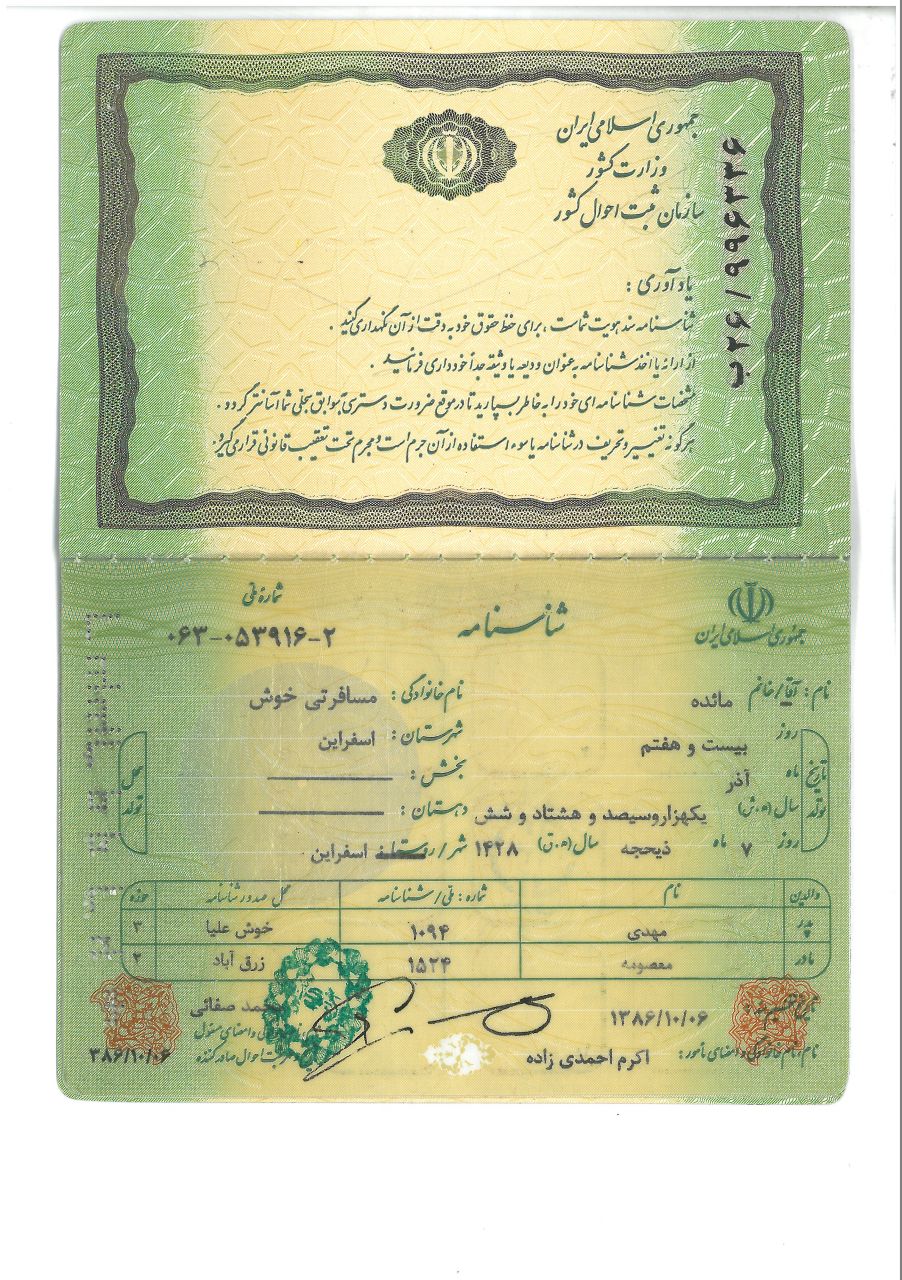 جمهوری اسلامی ایران
وزارت کشور
سازمان ثبت احوال کشور
ب۲۶/۹۹۶۳۳۶
یادآوری :
شناسنامه سند هویت شماست ، برای حفظ حقوق خود به دقت از آن نگهداری کنید .
از ارائه یا اخذ شناسنامه به عنوان ودیعه یا وثیقه جداً خودداری فرمائید .
مشخصات شناسنامه ای خود را به خاطر بسپارید تا در موقع ضرورت دسترسی به سوابق سجلی شما آسانتر گردد .
هرگونه تغییر و تحریف در شناسنامه یا سوء استفاده از آن جرم است و مجرم تحت تعقیب قانونی قرار می گیرد.
جمهوری اسلامی ایران
شناسنامه
شمارهٔ ملی
۰۶۳-۰۵۳۹۱۶-۲
نام : آقا/خانم مائده
نام خانوادگی : مسافرتی خوش
تاریخ تولد
روز بیست و هفتم
ماه آذر
سال (ه.ش) یکهزاروسیصد و هشتاد و شش
روز ۷ ماه ذیحجه سال (ه.ق) ۱۴۲۸
محل تولد
شهرستان : اسفراین
بخش :
دهستان :
شهر/روستا اسفراین
والدین نام شماره : ملی/شناسنامه محل صدور شناسنامه حوزه
پدر مهدی ۱۰۹۴ خوش علیا ۳
مادر معصومه ۱۵۲۴ زرق آباد ۲
۱۳۸۶/۱۰/۰۶
محمد صفائی
نام،نام خانوادگی و امضای مأمور : اکرم احمدی زاده
۳۸۶/۱۰/۰۶